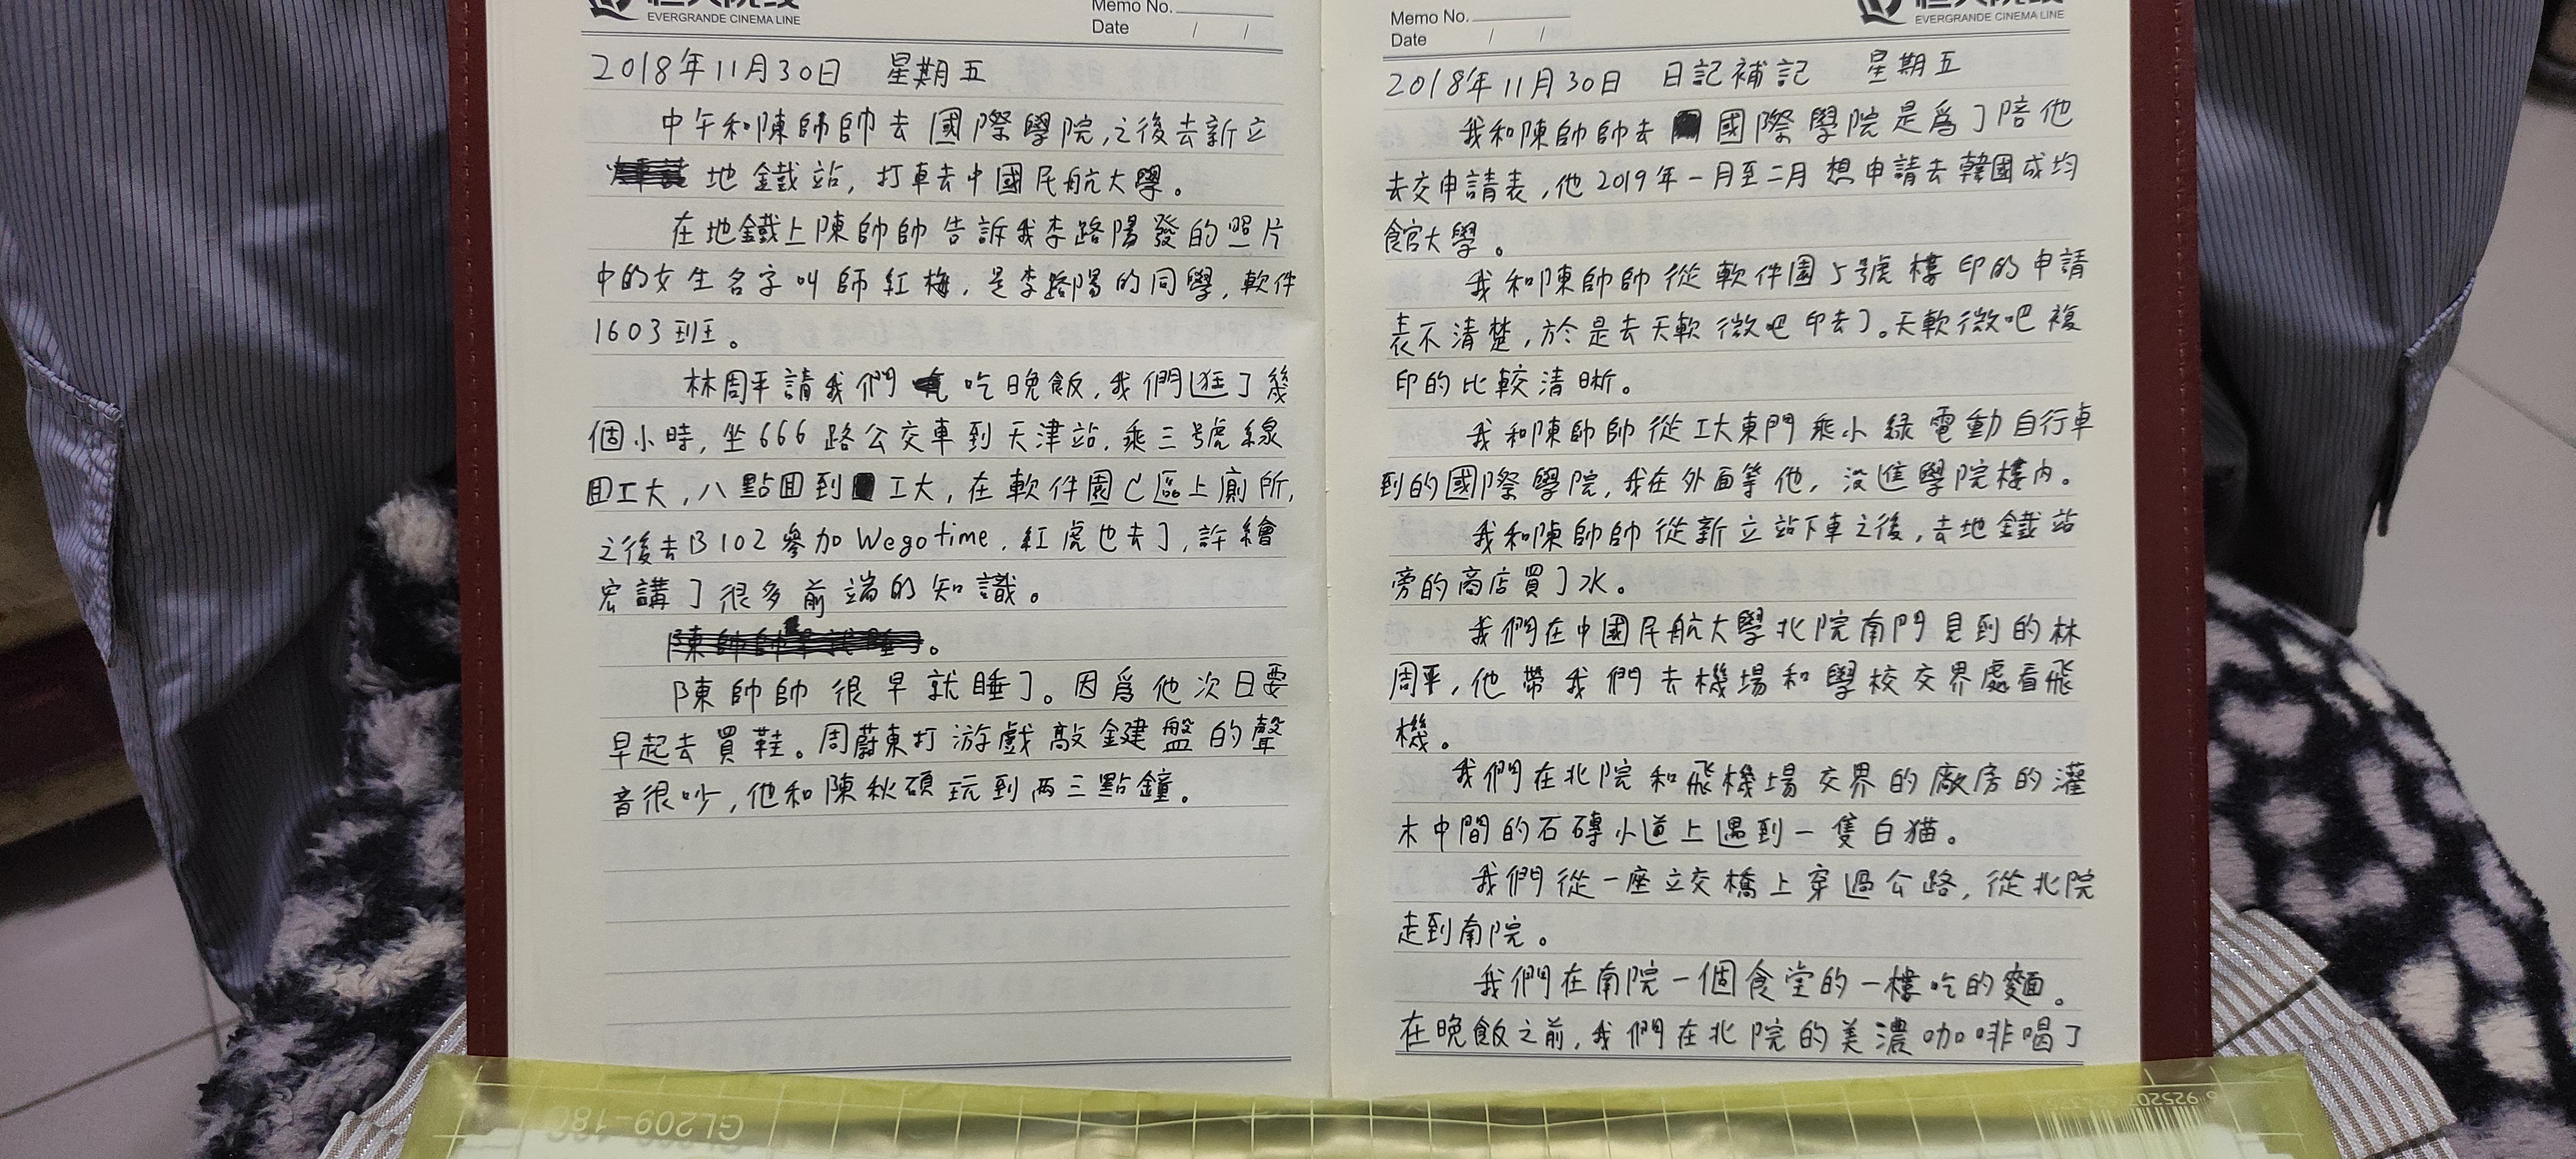 EVERGRANDE CINEMA LINE
Memo No.
Date / /
2018年11月30日 星期五
中午和陳帥帥去國際學院,之後去新立
地鐵站,打車去中國民航大學。
在地鐵上陳帥帥告訴我李路陽發的照片
中的女生名字叫師紅梅,是李路陽的同學,軟件
1603班。
林周平請我們吃晚飯,我們逛了幾
個小時,坐666路公交車到天津站,乘三號線
回工大,八點回到工大,在軟件園C區上廁所,
之後去B102參加Wegotime,紅虎也去了,許繪
宏講了很多前端的知識。
陳帥帥很早就睡了。因爲他次日要
早起去買鞋。周蔚東打游戲敲鍵盤的聲
音很吵,他和陳秋碩玩到兩三點鐘。
EVERGRANDE CINEMA LINE
Memo No.
Date / /
2018年11月30日 日記補記 星期五
我和陳帥帥去國際學院是爲了陪他
去交申請表,他2019年一月至二月想申請去韓國成均
館大學。
我和陳帥帥從軟件園5號樓印的申請
表不清楚,於是去天軟微吧印去了。天軟微吧複
印的比較清晰。
我和陳帥帥從工大東門乘小綠電動自行車
到的國際學院,我在外面等他,沒進學院樓內。
我和陳帥帥從新立站下車之後,去地鐵站
旁的商店買了水。
我們在中國民航大學北院南門見到的林
周平,他帶我們去機場和學校交界處看飛
機。
我們在北院和飛機場交界的廠房的灌
木中間的石磚小道上遇到一隻白猫。
我們從一座立交橋上穿過公路,從北院
走到南院。
我們在南院一個食堂的一樓吃的麵。
在晚飯之前,我們在北院的美濃咖啡喝了
GL209-18